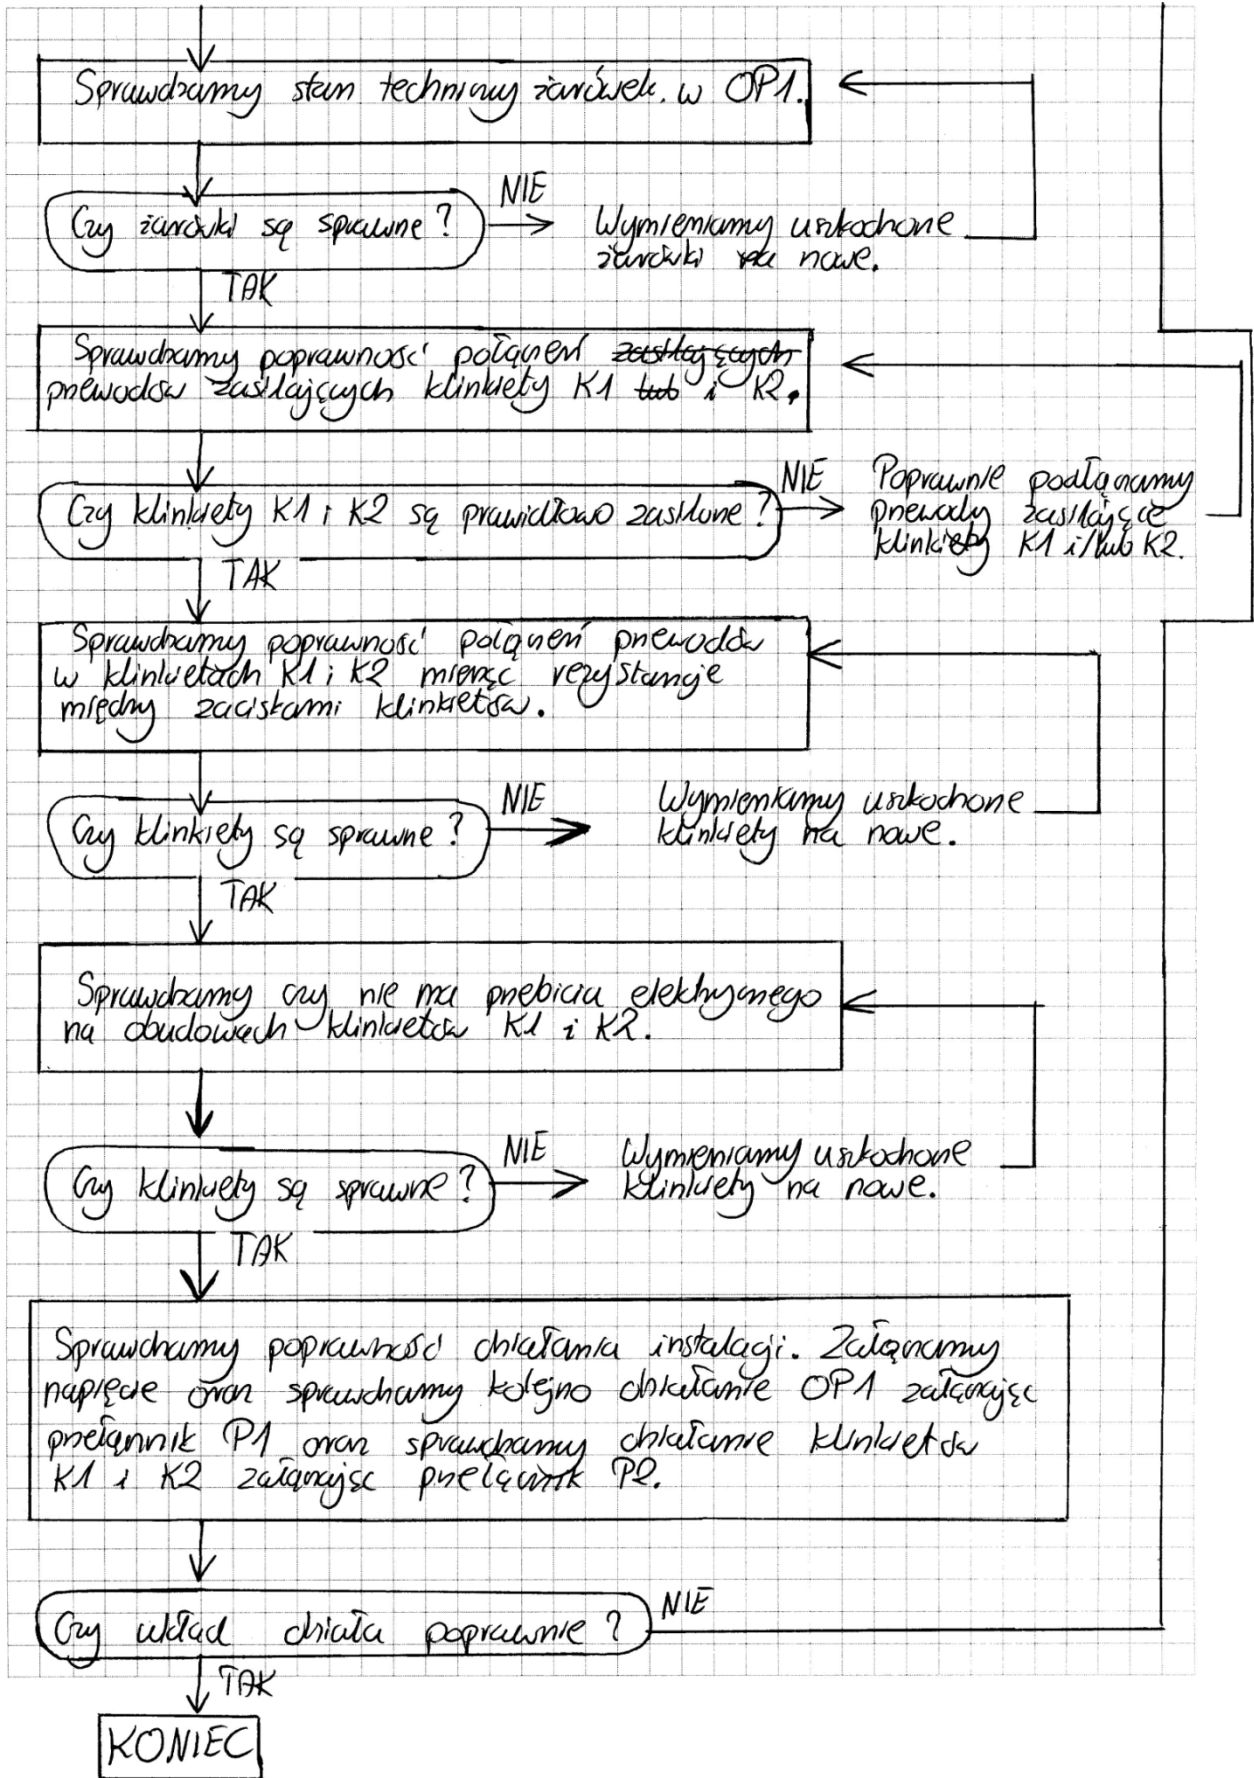 Sprawdzamy stan techniczny żarówek. w OP1.
Czy żarówki są sprawne?
NIE
Wymieniamy uszkodzone
żarówki na nowe.
TAK
Sprawdzamy poprawność połączeń zasilających
przewodów zasilających klinkiety K1 lub i K2.
Czy klinkiety K1 i K2 są prawidłowo zasilone?
NIE
Poprawnie podłączamy
przewody zasilające
klinkiety K1 i/lub K2.
TAK
Sprawdzamy poprawność połączeń przewodów
w klinkietach K1 i K2 mierząc rezystancje
między zaciskami klinkietów.
Czy klinkiety są sprawne?
NIE
Wymieniamy uszkodzone
klinkiety na nowe.
TAK
Sprawdzamy czy nie ma przebicia elektrycznego
na obudowach klinkietów K1 i K2.
Czy klinkiety są sprawne?
NIE
Wymieniamy uszkodzone
klinkiety na nowe.
TAK
Sprawdzamy poprawność działania instalacji. Załączamy
napięcie oraz sprawdzamy kolejno działanie OP1 załączając
przełącznik P1 oraz sprawdzamy działanie klinkietów
K1 i K2 załączając przełącznik P2.
Czy układ działa poprawnie?
NIE
TAK
KONIEC